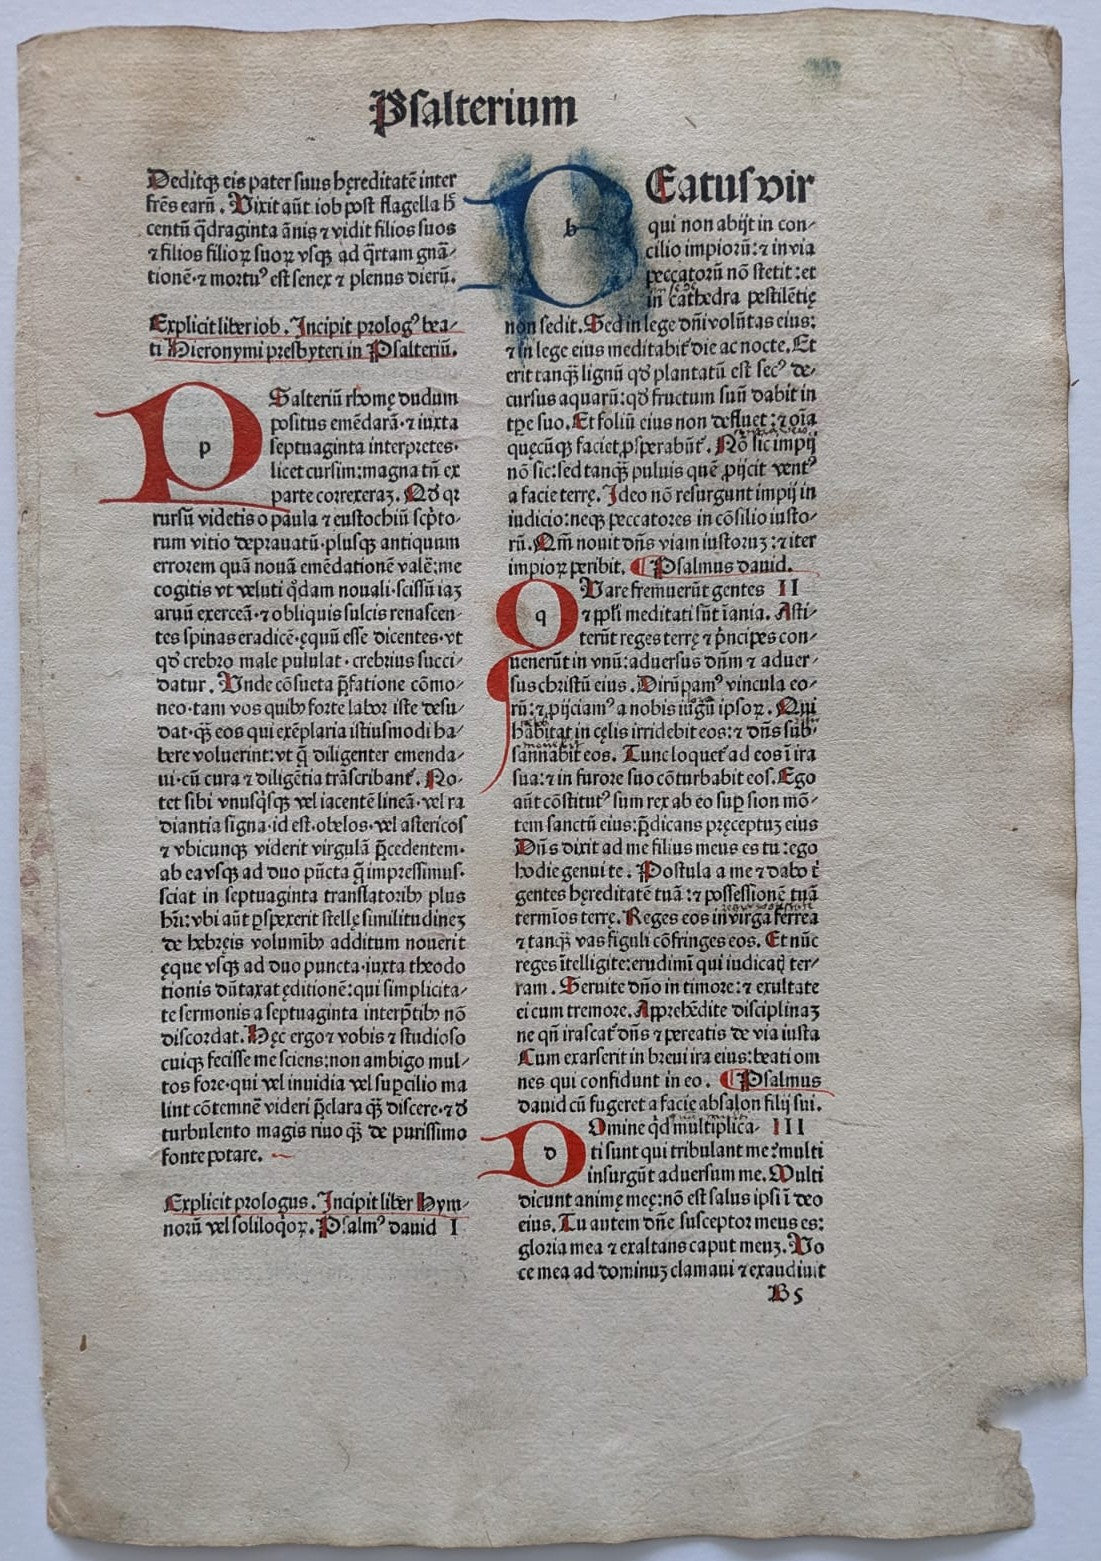 Psalterium
Deditq; eis pater suus hęreditatē inter
frēs earū. Vixit aūt iob post flagella h̄
centū q̄draginta ānis ⁊ vidit filios suos
⁊ filios filioꝝ suoꝝ vsq; ad q̄rtam gnā-
tionē·⁊ mortuꝰ est senex ⁊ plenus dierū.
Explicit liber iob. Incipit prologꝰ bea-
ti Hieronymi presbyteri in Psalteriū.
p
Salteriū rhomę dudum
positus emēdarā·⁊ iuxta
septuaginta interpretes·
licet cursim: magna tn̄ ex
parte correxeraꝫ. Qd̓ qꝛ
rursū videtis o paula ⁊ eustochiū scp̄to-
rum vitio deprauatū·plusq; antiquum
errorem quā nouā emēdationē valē: me
cogitis vt veluti q̇dam nouali·scissū iaꝫ
aruū exerceā·⁊ obliquis sulcis renascen-
tes spinas eradicē·ęquū esse dicentes·vt
qd̓ crebro male pululat·crebrius succi-
datur. Unde cōsueta p̄fatione cōmo-
neo·tam vos quibꝰ forte labor iste desu-
dat·q̄ꝫ eos qui exēplaria istiusmodi ha-
bere voluerint: vt q̄ diligenter emenda-
ui·cū cura ⁊ diligētia trāscribant̄. No-
tet sibi vnusq̇sq; vel iacentē lineā·vel ra
diantia signa·id est·obelos·vel astericos
⁊ vbicunq; viderit virgulā p̄cedentem·
ab ea vsq; ad duo pūcta q̄ impressimus·
sciat in septuaginta translatoribꝰ plus
hr̄i: vbi aūt ꝑspexerit stellę similitudineꝫ
de hebręis volumībꝰ additum nouerit
ęque vsq; ad duo puncta·iuxta theodo
tionis dūtaxat ęditionē: qui simplicita-
te sermonis a septuaginta interp̄tibꝰ nō
discordat. Hęc ergo ⁊ vobis ⁊ studioso
cuiq; fecisse me sciens: non ambigo mul-
tos fore·qui vel inuidia vel suꝑcilio ma
lint cōtemnē videri p̄clara q̄ꝫ discere·⁊ d̓
turbulento magis riuo q̄ꝫ de purissimo
fonte potare.
Explicit prologus. Incipit liber Hym-
norū vel soliloq̇oꝝ. Psalmꝰ dauid I
b
Eatus vir
qui non abijt in con-
cilio impiorū: ⁊ in via
peccatorū nō stetit: et
in cathedra pestilētię
non sedit. Sed in lege dn̄i volūtas eius:
⁊ in lege eius meditabit̄ die ac nocte. Et
erit tanq̄ꝫ lignū qd̓ plantatū est secꝰ de-
cursus aquarū: qd̓ fructum suū dabit in
tp̄e suo. Et foliū eius non defluet: ⁊ oīa
quęcūq; faciet ꝓsperabūt̄. Nō sic impij
nō sic: sed tanq̄ꝫ puluis quē ꝓijcit ventꝰ
a facie terrę. Ideo nō resurgunt impij in
iudicio: neq; peccatores in cōsilio iusto-
rū. Qm̄ nouit dn̄s viam iustoruꝫ: ⁊ iter
impioꝝ peribit. ¶Psalmus dauid.
q
Vare fremuerūt gentes II
⁊ ppl̄i meditati sūt īania. Asti-
terūt reges terrę ⁊ p̄ncipes con-
uenerūt in vnū: aduersus dn̄m ⁊ aduer-
sus christū eius. Dirūpamꝰ vincula eo-
rū: ⁊ ꝓijciamꝰ a nobis iugū ipsoꝝ. Qui
habitat in cęlis irridebit eos: ⁊ dn̄s sub-
sannabit eos. Tunc loquet̄ ad eos ī ira
sua: ⁊ in furore suo cōturbabit eos. Ego
aūt cōstitutꝰ sum rex ab eo suꝑ sion mō-
tem sanctū eius: p̄dicans pręceptuꝫ eius
Dn̄s dixit ad me filius meus es tu: ego
hodie genui te. Postula a me ⁊ dabo t̄
gentes hęreditatē tuā: ⁊ possessionē tuā
termīos terrę. Reges eos in virga ferrea
⁊ tanq̄ꝫ vas figuli cōfringes eos. Et nūc
reges ītelligite: erudimī qui iudicat̄ ter-
ram. Seruite dn̄o in timore: ⁊ exultate
ei cum tremore. Apprehēdite disciplinaꝫ
ne qn̄ irascat̄ dn̄s ⁊ pereatis de via iusta
Cum exarserit in breui ira eius: beati om
nes qui confidunt in eo. ¶Psalmus
dauid cū fugeret a facie absalon filij sui.
D
Omine q̇d multiplica- III
ti sunt qui tribulant me: multi
insurgūt aduersum me. Multi
dicunt animę męę: nō est salus ipsi ī deo
eius. Tu autem dn̄e susceptor meus es:
gloria mea ⁊ exaltans caput meuꝫ. Vo
ce mea ad dominuꝫ clamaui ⁊ exaudiuit
B 5